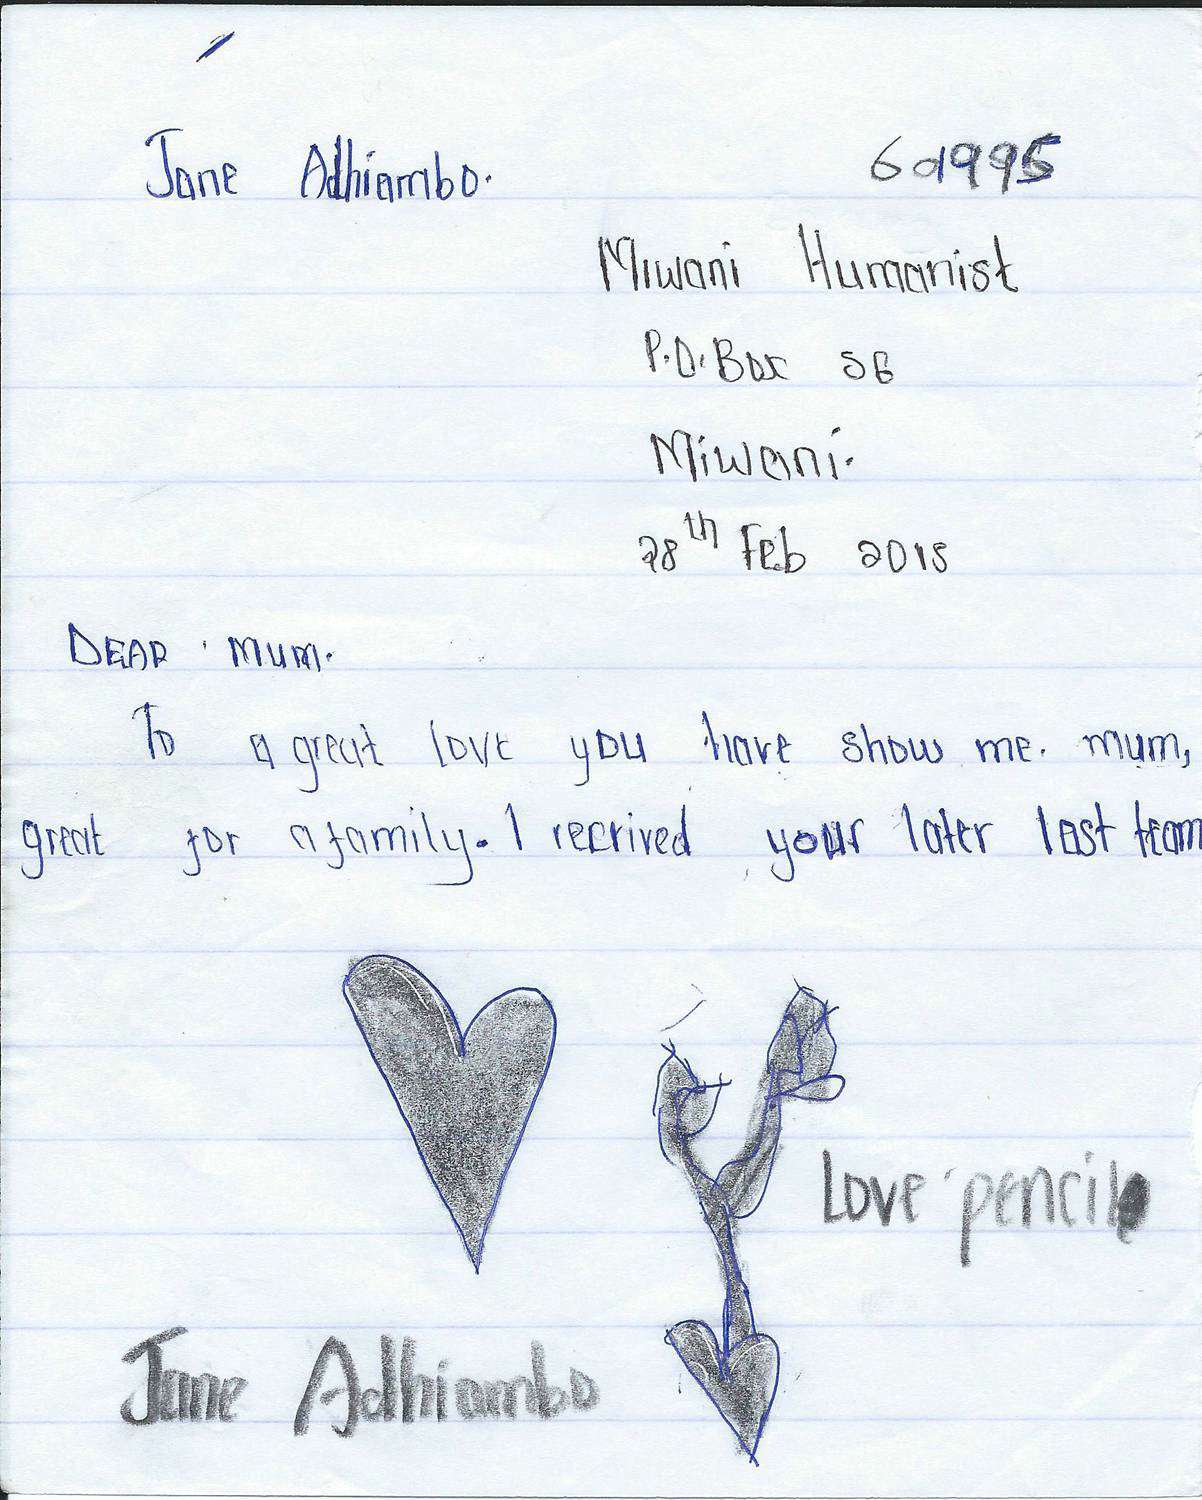 Jane Adhiambo.
Miwani Humanist
P.O. Box 56
Miwani.
28th Feb 2015
DEAR mum.
To a great love you have show me. mum,
great for a family. I recrived your later last team
Love pencil
Jane Adhiambo